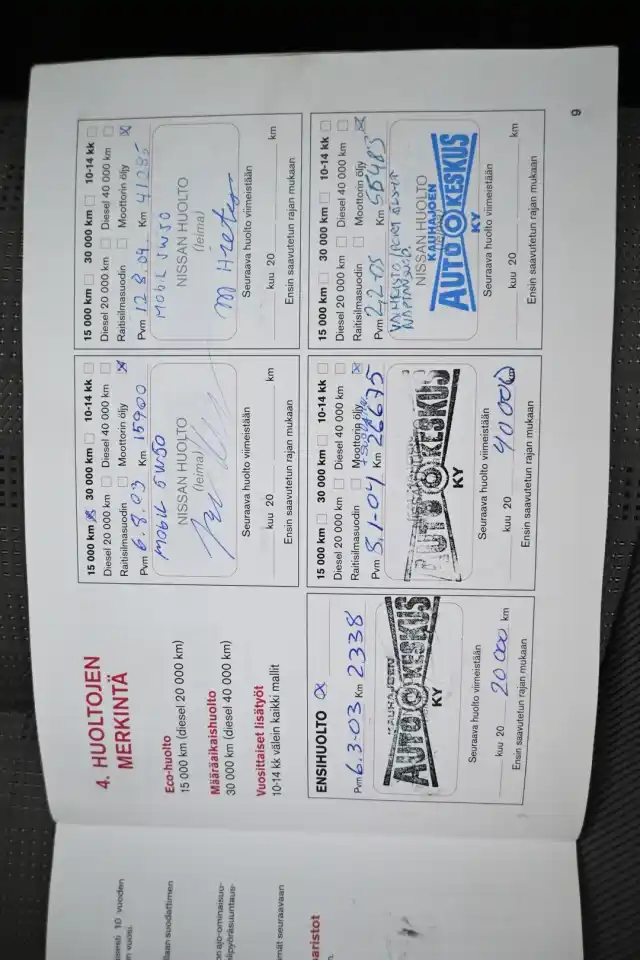 4. HUOLTOJEN
MERKINTÄ
Eco-huolto
15 000 km (diesel 20 000 km)
Määräaikaishuolto
30 000 km (diesel 40 000 km)
Vuosittaiset lisätyöt
10-14 kk välein kaikki mallit
ENSIHUOLTO
Pvm 6.3-03 Km 2338
KAUHAJOEN
AUTOKESKUS
KY
Seuraava huolto viimeistään
kuu 20 20 000 km
Ensin saavutetun rajan mukaan
15 000 km 30 000 km 10-14 kk
Diesel 20 000 km Diesel 40 000 km
Raitisilmasuodin Moottorin öljy
Pvm 6.8.03 Km 15900
MOBIL 5W50
NISSAN HUOLTO
(leima)
Seuraava huolto viimeistään
kuu 20 km
Ensin saavutetun rajan mukaan
15 000 km 30 000 km 10-14 kk
Diesel 20 000 km Diesel 40 000 km
Raitisilmasuodin Moottorin öljy
Pvm 12.8.04 Km 41285
MOBIL 5W50
NISSAN HUOLTO
(leima)
Seuraava huolto viimeistään
kuu 20 km
Ensin saavutetun rajan mukaan
15 000 km 30 000 km 10-14 kk
Diesel 20 000 km Diesel 40 000 km
Raitisilmasuodin Moottorin öljy
Pvm 5.1-04 Km 26675
AUTOKESKUS
KY
Seuraava huolto viimeistään
kuu 20 40 000 km
Ensin saavutetun rajan mukaan
15 000 km 30 000 km 10-14 kk
Diesel 20 000 km Diesel 40 000 km
Raitisilmasuodin Moottorin öljy
Pvm 2.2-05 Km 56483
NISSAN HUOLTO
KAUHAJOEN
AUTOKESKUS
KY
Seuraava huolto viimeistään
kuu 20 km
Ensin saavutetun rajan mukaan
9